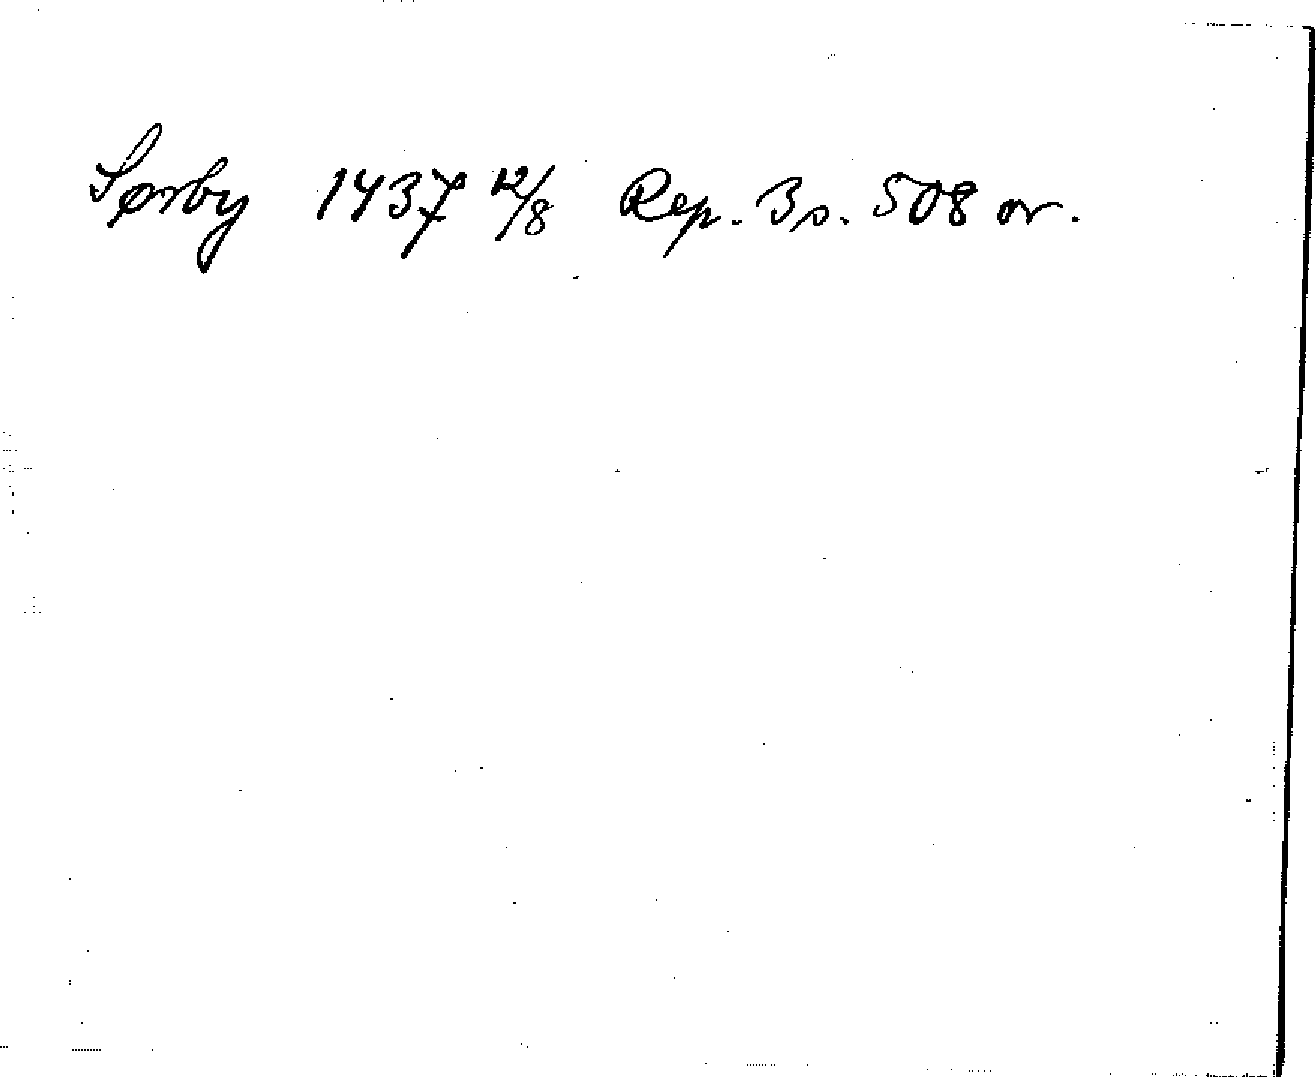 Sørby 1437 12/8 Rep. 3 s. 508 or.